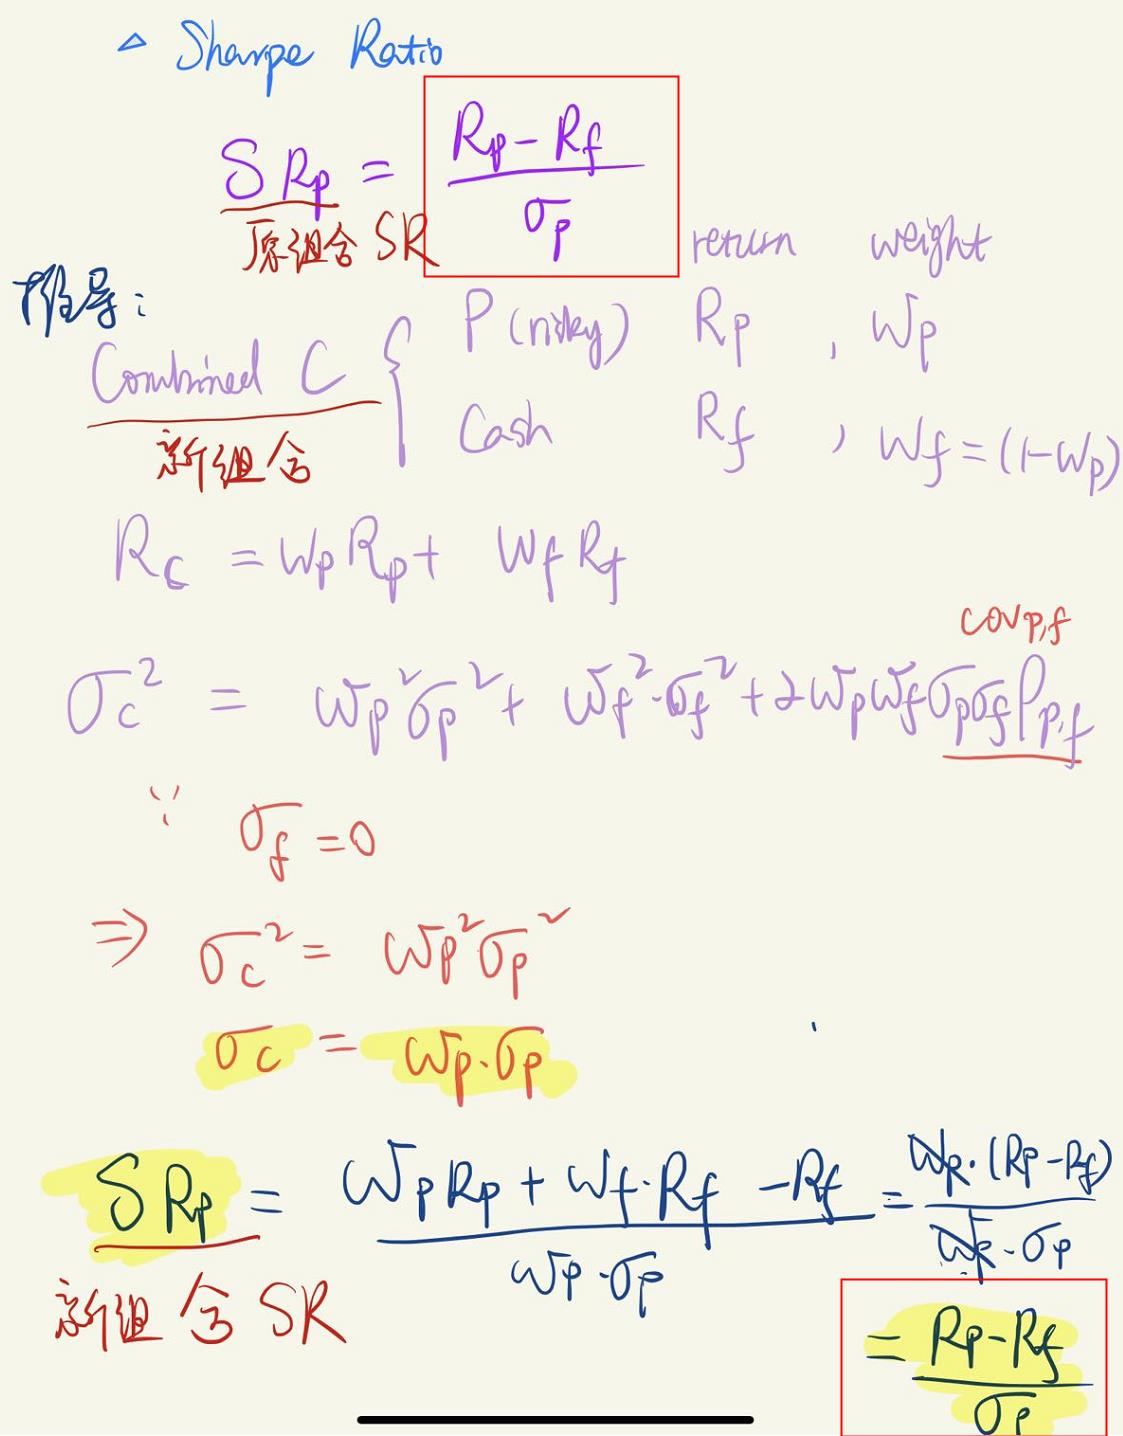 △ Sharpe Ratio
SRp = (Rp - Rf) / σp
原组合 SR
return weight
推导:
Combined C { P (risky) Rp , Wp
Cash Rf , Wf = (1-Wp)
新组合
Rc = Wp Rp + Wf Rf
cov p,f
σc² = Wp² σp² + Wf² · σf² + 2 Wp Wf σp σf ρp,f
∵ σf = 0
⇒ σc² = Wp² σp²
σc = Wp · σp
SRp = (Wp Rp + Wf · Rf - Rf) / (Wp · σp) = (Wp · (Rp - Rf)) / (Wp · σp)
新组合 SR
= (Rp - Rf) / σp